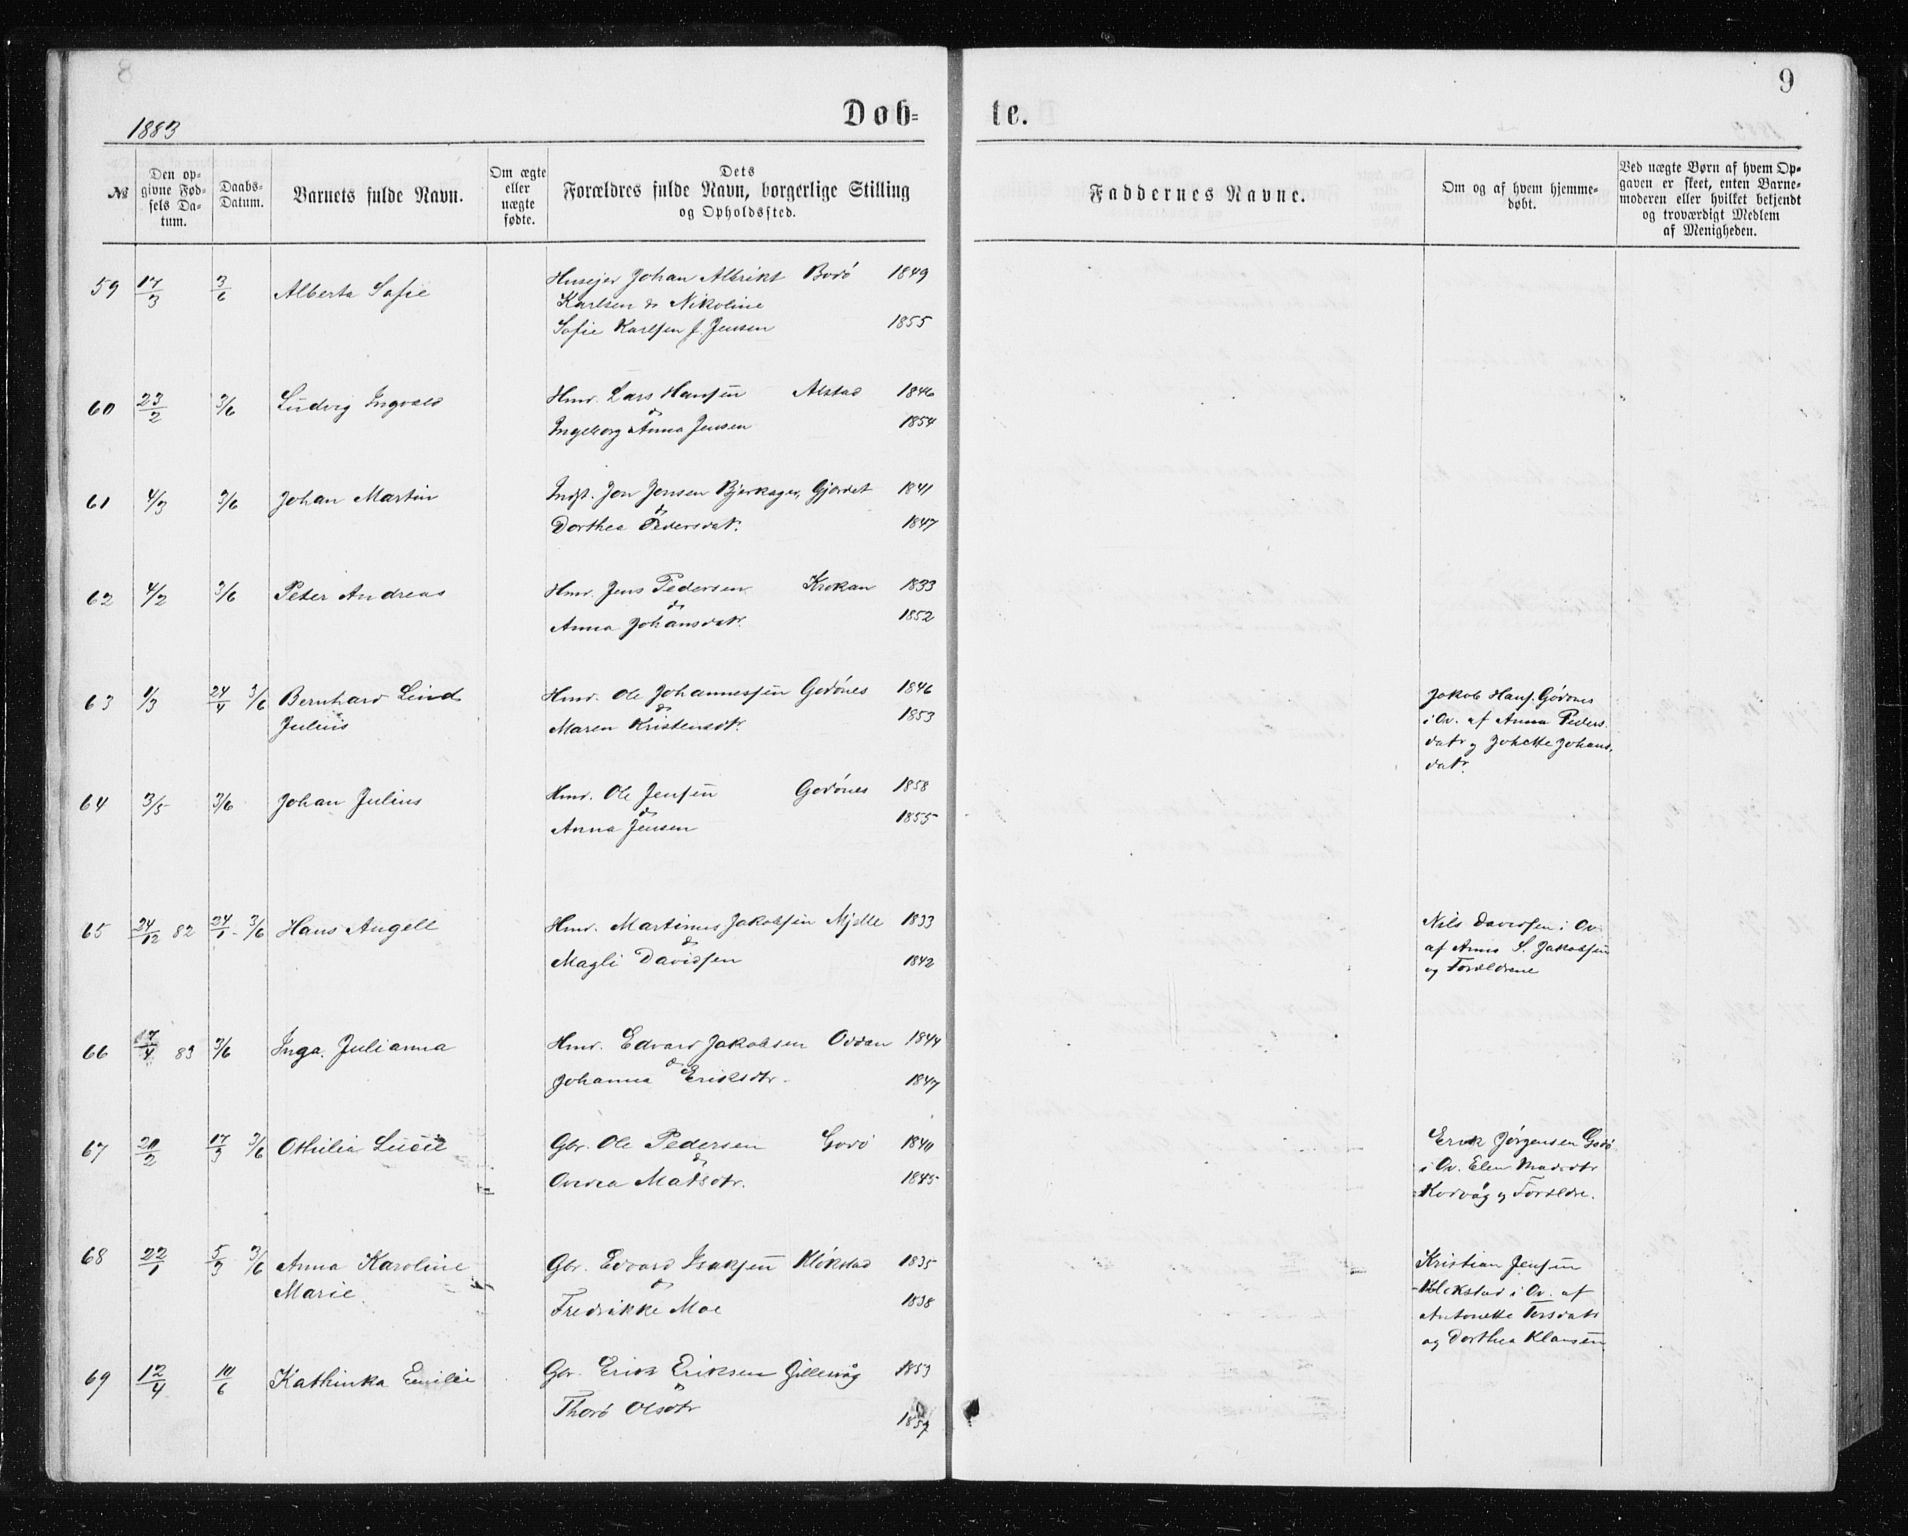 9
1883
Døb=
te.
№
Den op-
givne Fød-
sels Da-
tum.
Daabs-
Datum.
Barnets fulde Navn.
Om ægte
eller
uægte
fødte.
Dets
Forældres fulde Navn, borgerlige Stilling
og Opholdssted.
Faddernes Navne.
Om og af hvem hjemme-
døbt.
Ved uægte Børn af hvem Op-
gaven er skeet, enten Barne-
moderen eller hvilket bekjendt
og troværdigt Medlem
af Menigheden.
59 17/3 3/6 Alberta Sofie Husejer Johan Albrikt Bodø 1849
Karlsen & Nikoline
Sofie Karlsen f. Jensen 1855
60 23/2 3/6 Ludvig Ingvald Hmd. Lars Hansen Alstad 1846
&
Ingeborg Anna Jensen 1854
61 4/3 3/6 Johan Martin Indst. Jon Jonsen Bjerkager, Gjerdet 1841
&
Dorthea Pedersdatr. 1847
62 4/2 3/6 Peter Andreas Hmd. Jens Pedersen Krokan 1833
&
Anna Johansdatr. 1852
63 1/3 24/4 3/6 Bernhard Lind Hmd. Ole Johannessen Godønes 1846
&
Julius Maren Kristensdtr. 1853
Jakob Hans. Godønes
i Ov. af Anna Peders-
datr og Johette Johans-
datr.
64 3/5 3/6 Johan Julius Hmd. Ole Jensen Godønes 1858
&
Anna Jensen 1855
65 24/12 82 24/1 3/6 Hans Angell Hmd. Martinus Jakobsen Mjelle 1833
&
Magli Davidsen 1842
Nils Davidsen i Ov.
af Anna S. Jakobsen
og Forældrene
66 17/4 83 3/6 Inga Julianna Hmd. Edvard Jakobsen Oddan 1844
&
Johanna Eriksdtr. 1847
67 20/2 17/3 3/6 Othilia Lucie Gbr. Ole Pedersen Godø 1840
&
Ovedia Matsdtr. 1845
Erik Jørgensen Godø
i Ov. Elen Madsdtr
Kodvåg og Forældre.
68 22/1 5/3 3/6 Anna Karoline Gbr. Edvard Isaksen Kløkstad 1835
&
Marie Fredrikke Moe 1838
Kristian Jensen
Kløkstad i Ov. af
Antonette Torsdatr
og Dorthea Klausen
69 12/4 10/6 Kathinka Emilie Gbr. Erik Eriksen Gillesvåg 1853
&
Thora Olsdtr 1857